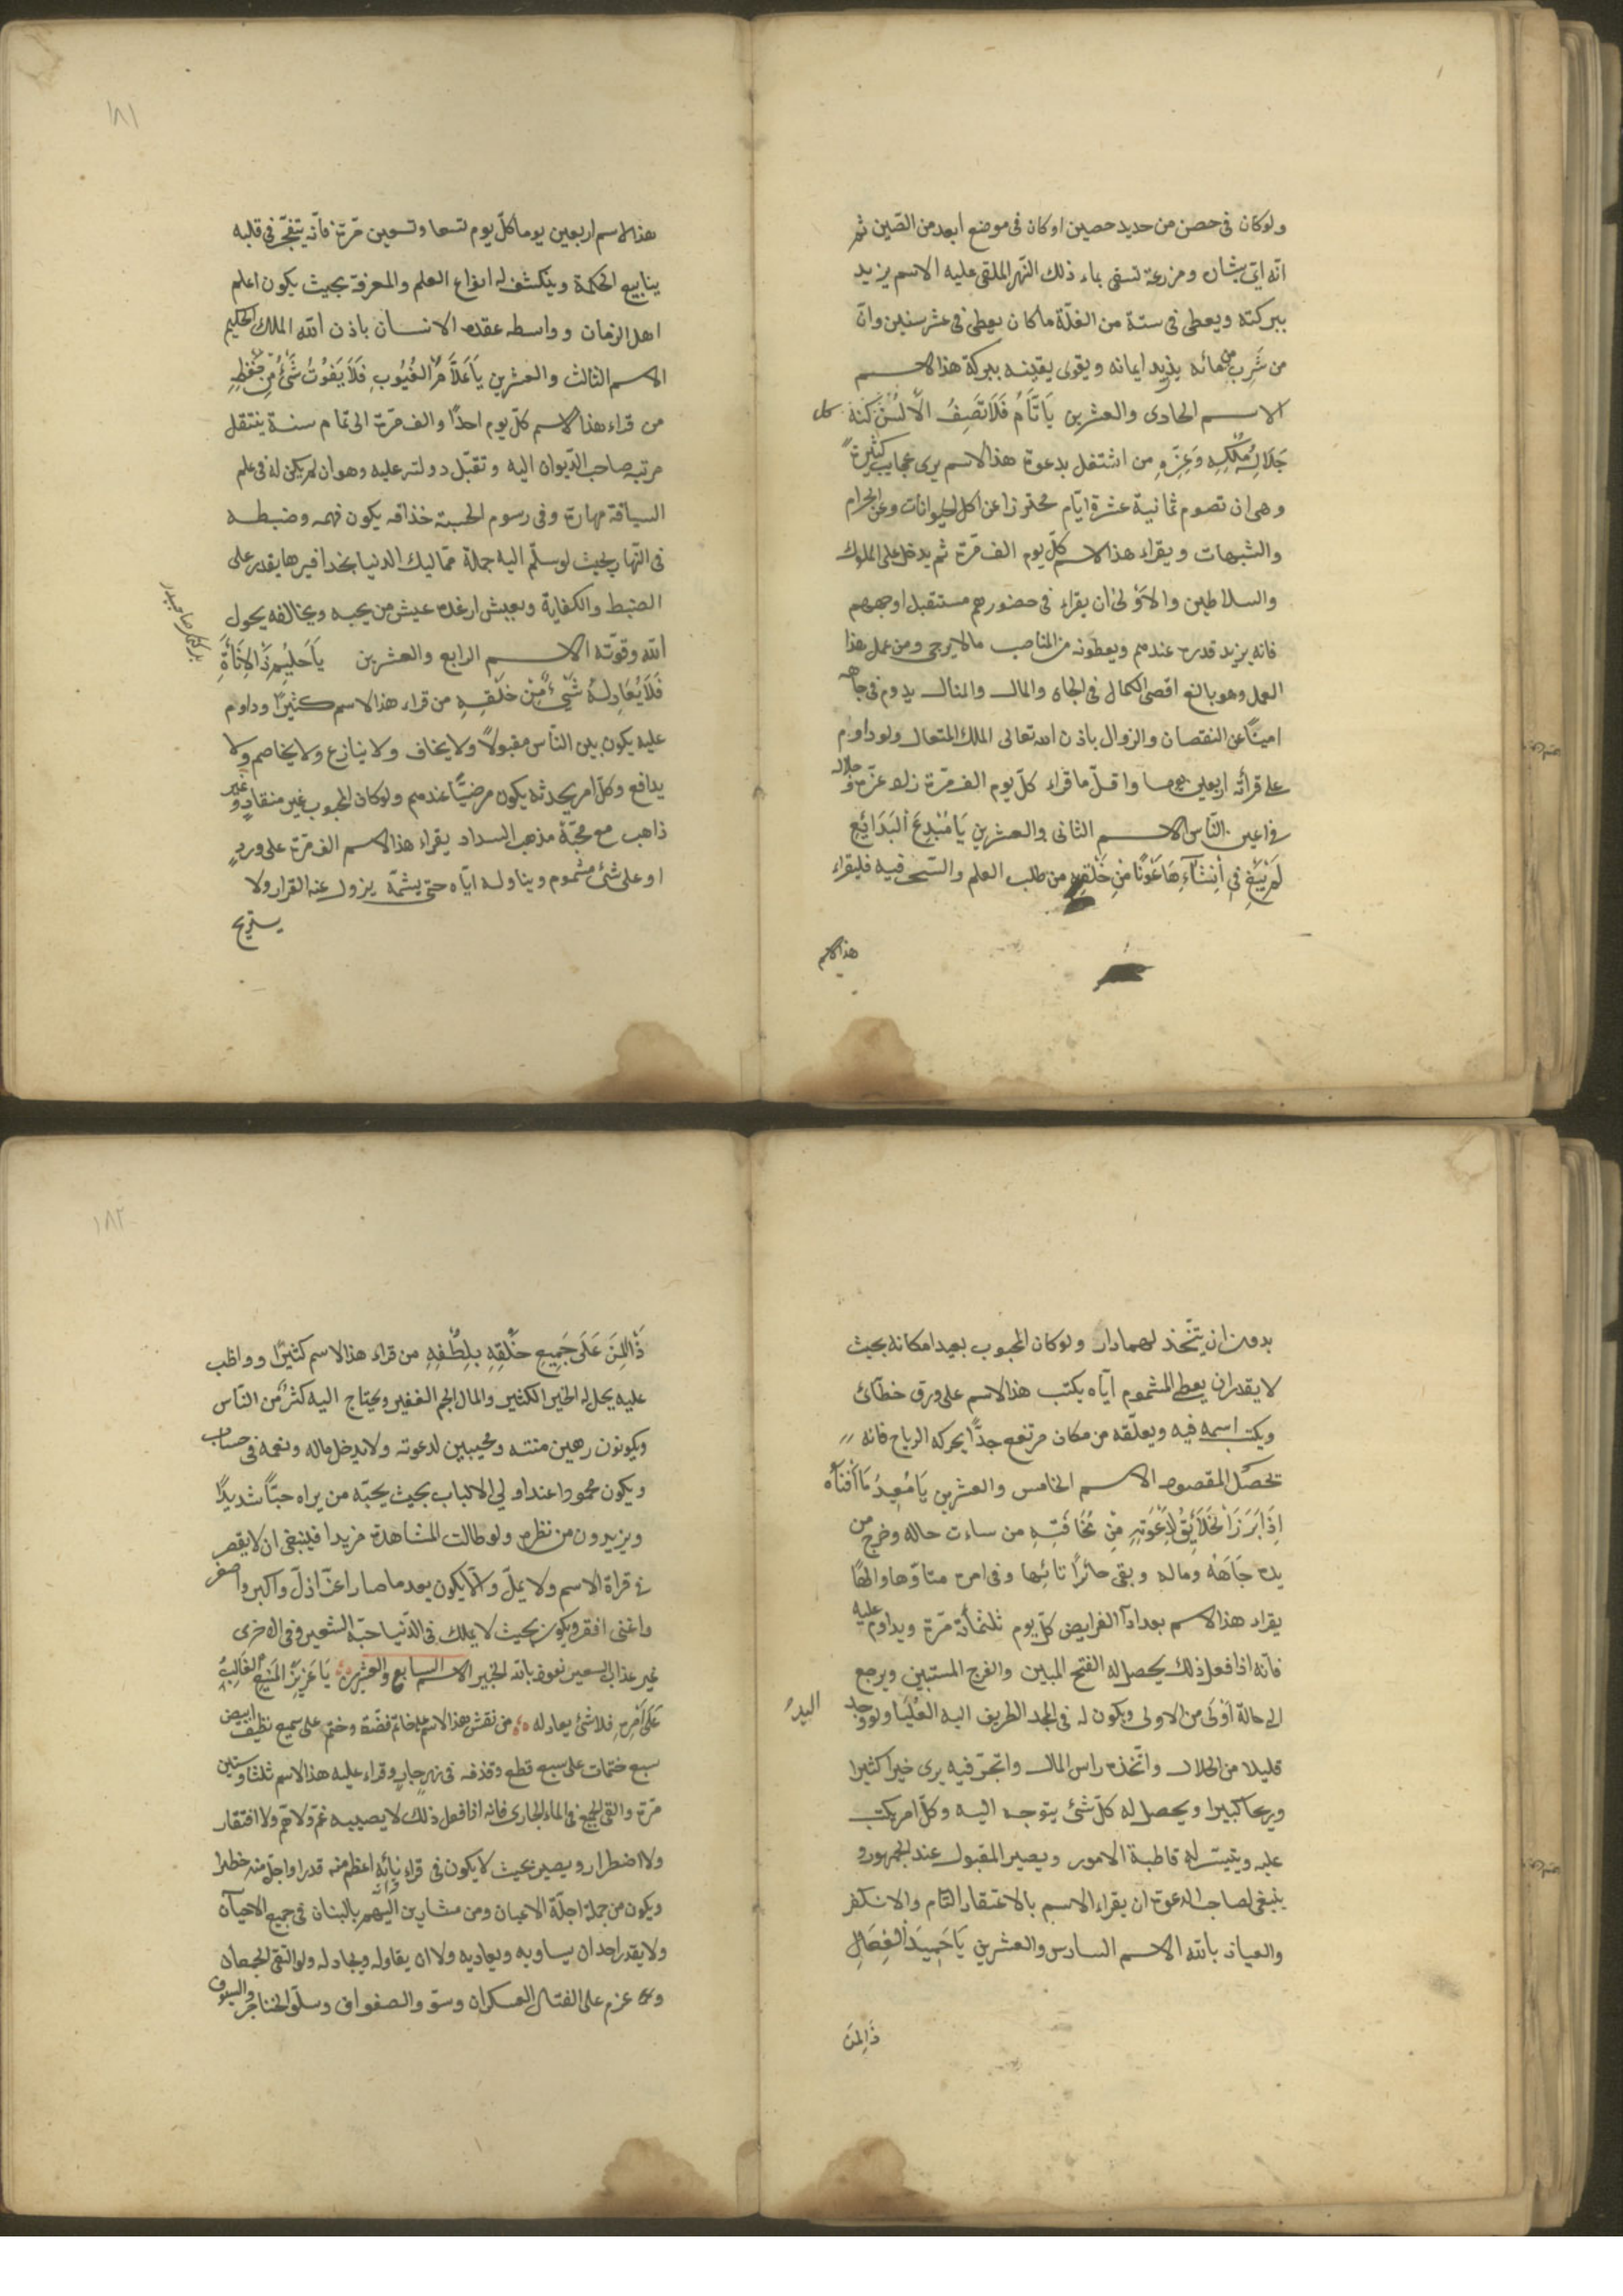 ولو كان فى حصن من حديد حصين او كان فى موضع ابعد من الصّين ثمّ
انّه اىّ بستان ومزرعة تسقى بماء ذلك النّهر الملقى عليه الاسم يزيد
ببركته ويعطى فى سنة من الغلّة ما كان يعطى فى عشر سنين وان
من شَرِبَ من مائه يزيد ايمانه ويقوى يقينه ببركة هذا الاسم
الاسم الحادى والعشرين يَا تَامُّ فَلَا تَصِفُ الْاَلْسُنُ كُنهَ كل
جَلَالِهِ مُلْكِهِ وَعِزِّهِ من اشتغل بدعوة هذا الاسم يرى عجايب كثيرةً
وهى ان تصوم ثمانية عشرة ايّام محترزا عن اكل الحيوانات وعن الحرام
والشبهات ويقراء هذا الاسم كلّ يوم الف مّرة ثم يدخل على الملوك
والسلاطين والاَوْلى ان يقراء فى حضورهم مستقبل اوجههم
فانه يزيد قدره عندهم ويعطونه من المناصب ما لا يرجى ومن عمل هذا
العمل وهو بالغ اقصى الكمال فى الجاه والمال والمنال يدوم فى جاهه
امينًا عن النقصان والزوال باذن الله تعالى الملك المتعال ولو داوم
على قرأته اربعين يوما واقلّ ما قراء كلّ يوم الف مّرة زاد عزّه وجلاله
فى اعين النّاس الاسم الثانى والعشرين يَا مُبْدِعَ الْبَدَائِعِ
لَمْ يَبْغِ فِى اِنْشَآءِهَا عَوْنًا مِنْ خَلْقِهِ من طلب العلم والتبحّر فيه فليقراء
هذا الاسم
١٨١
هذا الاسم اربعين يوما كلّ يوم تسعا وتسعين مّرة فأنّه يتفجّر فى قلبه
ينابيع الحكمة وينكشف له انواع العلم والمعرفة بحيث يكون اعلم
اهل الزمان وواسطه عقده الانسان باذن الله الملك الحكيم
الاسم الثالث والعشرين يَا عَلَّامَ الْغُيُوبِ فَلَا يَفُوتُ شَىْءٌ مِنْ حِفْظِهِ
من قراء هذا الاسم كلّ يوم احدًا والف مّرة الى تمام سنة ينتقل
مرتبه صاحب الدّيوان اليه وتقبّل دولته عليه وهو ان لم يكن له فى علم
السياقة مهارة وفى رسوم الحسبة حذاقه يكون فهمه وضبطه
فى النّهاية بحيث لو سلّم اليه جملة مماليك الدنيا بحذافيرها يقدر على
الضبط والكفاية ويعيش ارغده عيش من يحبه ويخالفه بحول
الله وقوّته الاسم الرابع والعشرين يَا حَلِيمُ ذَا الْاِنَأَةِ
فَلَا يُعَادِلُهُ شَىْءٌ مِنْ خَلْقِهِ من قراء هذا الاسم كثيرًا وداوم
عليه يكون بين النّاس مقبولًا ولا يخاف ولا ينازع ولا يخاصم ولا
يدافع وكلّ امر يحدثه يكون مرضيًّا عندهم ولو كان المحبوب غير منقادٍ وغير
ذاهب مع محبّهُ مذهب السداد يقراء هذا الاسم الف مّرة على وردٍ
او على شئ مشموم ويناوله ايّاه حتى يشمّه يزول عنه القرار ولا
يستريح
بدون ان يتّخذ لهما دارا ولو كان المحبوب بعيدا مكانه بحيث
لا يقدر ان يعطى المشموم ايّاه يكتب هذا الاسم على ورق خطآئ
ويكتب اسمه فيه ويعلّقه من مكان مرتفع جدًّا يحركه الرياح فانه
تحصّل المقصود الاسم الخامس والعشرين يَا مُعِيدُ مَا اَفْنَاهُ
اِذَا بَرَزَ الْخَلَائِقُ لِدَعْوَتِهِ مِنْ مَخَافَتِهِ من ساءت حاله وخرج من
يده جَاهُهُ وماله وبقى حائرًا تائها وفى امره متاوّها والهًا
يقراء هذا الاسم بعد ادآ الفرايض كلّ يوم ثلثمأنة مّرة ويداوم عليه
فانّه اذا فعل ذلك يحصل له الفتح المبين والفرج المستبين ويرجع
الى حالة اَوْلَى من الاولى ويكون له فى المجد الطريف اليد العُلْيَا ولو وجد
اليدُ
قليلا من الحلال واتّخذه راس المال واتجرّ فيه يرى خيرا كثيرا
وربحا كبيرا ويحصل له كلّ شئ يتوجه اليه وكلّ امر يكب
عليه ويتيسّر له قاطبة الامور ويصير المقبول عند الجمهور و
ينبغى لصاحب الدعوة ان يقراء الاسم بالاعتقاد التام والا نكفر
والعياذ بالله الاسم السادس والعشرين يَا حَمِيدَ الْفِعَالِ
ذَا الْمَنِّ
١٨٢
ذَا الْمَنِّ عَلَى جَمِيعِ خَلْقِهِ بِلُطْفِهِ من قراء هذا الاسم كثيرًا وواظب
عليه يحل له الخير الكثير والمال الجم الغفير ويحتاج اليه كثرٌ من النّاس
ويكونون رهين منته ومجيبين لدعوته ولا يدخل ماله ونعمه فى حساب
ويكون محمودا عند اولى الالباب بحيث يحبّه من يراه حبّاً شديدًا
ويزيدون من نظره ولو طالت المشاهدة مزيدا فينبغى ان لا يقصر
فى قراة الاسم ولا يملّ والّا يكون بعد ما صار اعزّ اذلّ واكبر واصغر
واغنى افقر ويكون بحيث لا يملك فى الدّنيا حبّة الشعير وفى الاخرى
غير عذاب السعير نعوذ بالله الخبير الاسم السابع والعشرين يَا عَزِيزُ الْمَنِيعُ الْغَالِبُ
عَلَى اَمْرِهِ فلا شئ يعادله من نقش هذا الاسم على خاتم فضّة وختم على سميع نظيف ابيض
سبع ختمات على سبع قطع وقذفه فى نهر جارٍ وقراء عليه هذا الاسم ثلثا وستين
مّرة والقى الجميع فى الماء الجارى فانه اذا فعل ذلك لا يصيبه غمّ ولا همّ ولا افتقار
ولا اضطرار ويصير بحيث لا يكون فى قراءِ نِيآئِهِ اعظم منه قدرا واجلّ منه خطرا
ويكون من جملة اجلّة الاعيان ومن مشارين اليهم بالبنان فى جميع الاحيآن
ولا يقدر احد ان يساويه ويعاديه ولا ان يقاوله ويجادله ولو التقى الجمعان
وعزم على القتال العسكران وسوّوا الصفوف وسلّوا الخناجر والسيوف